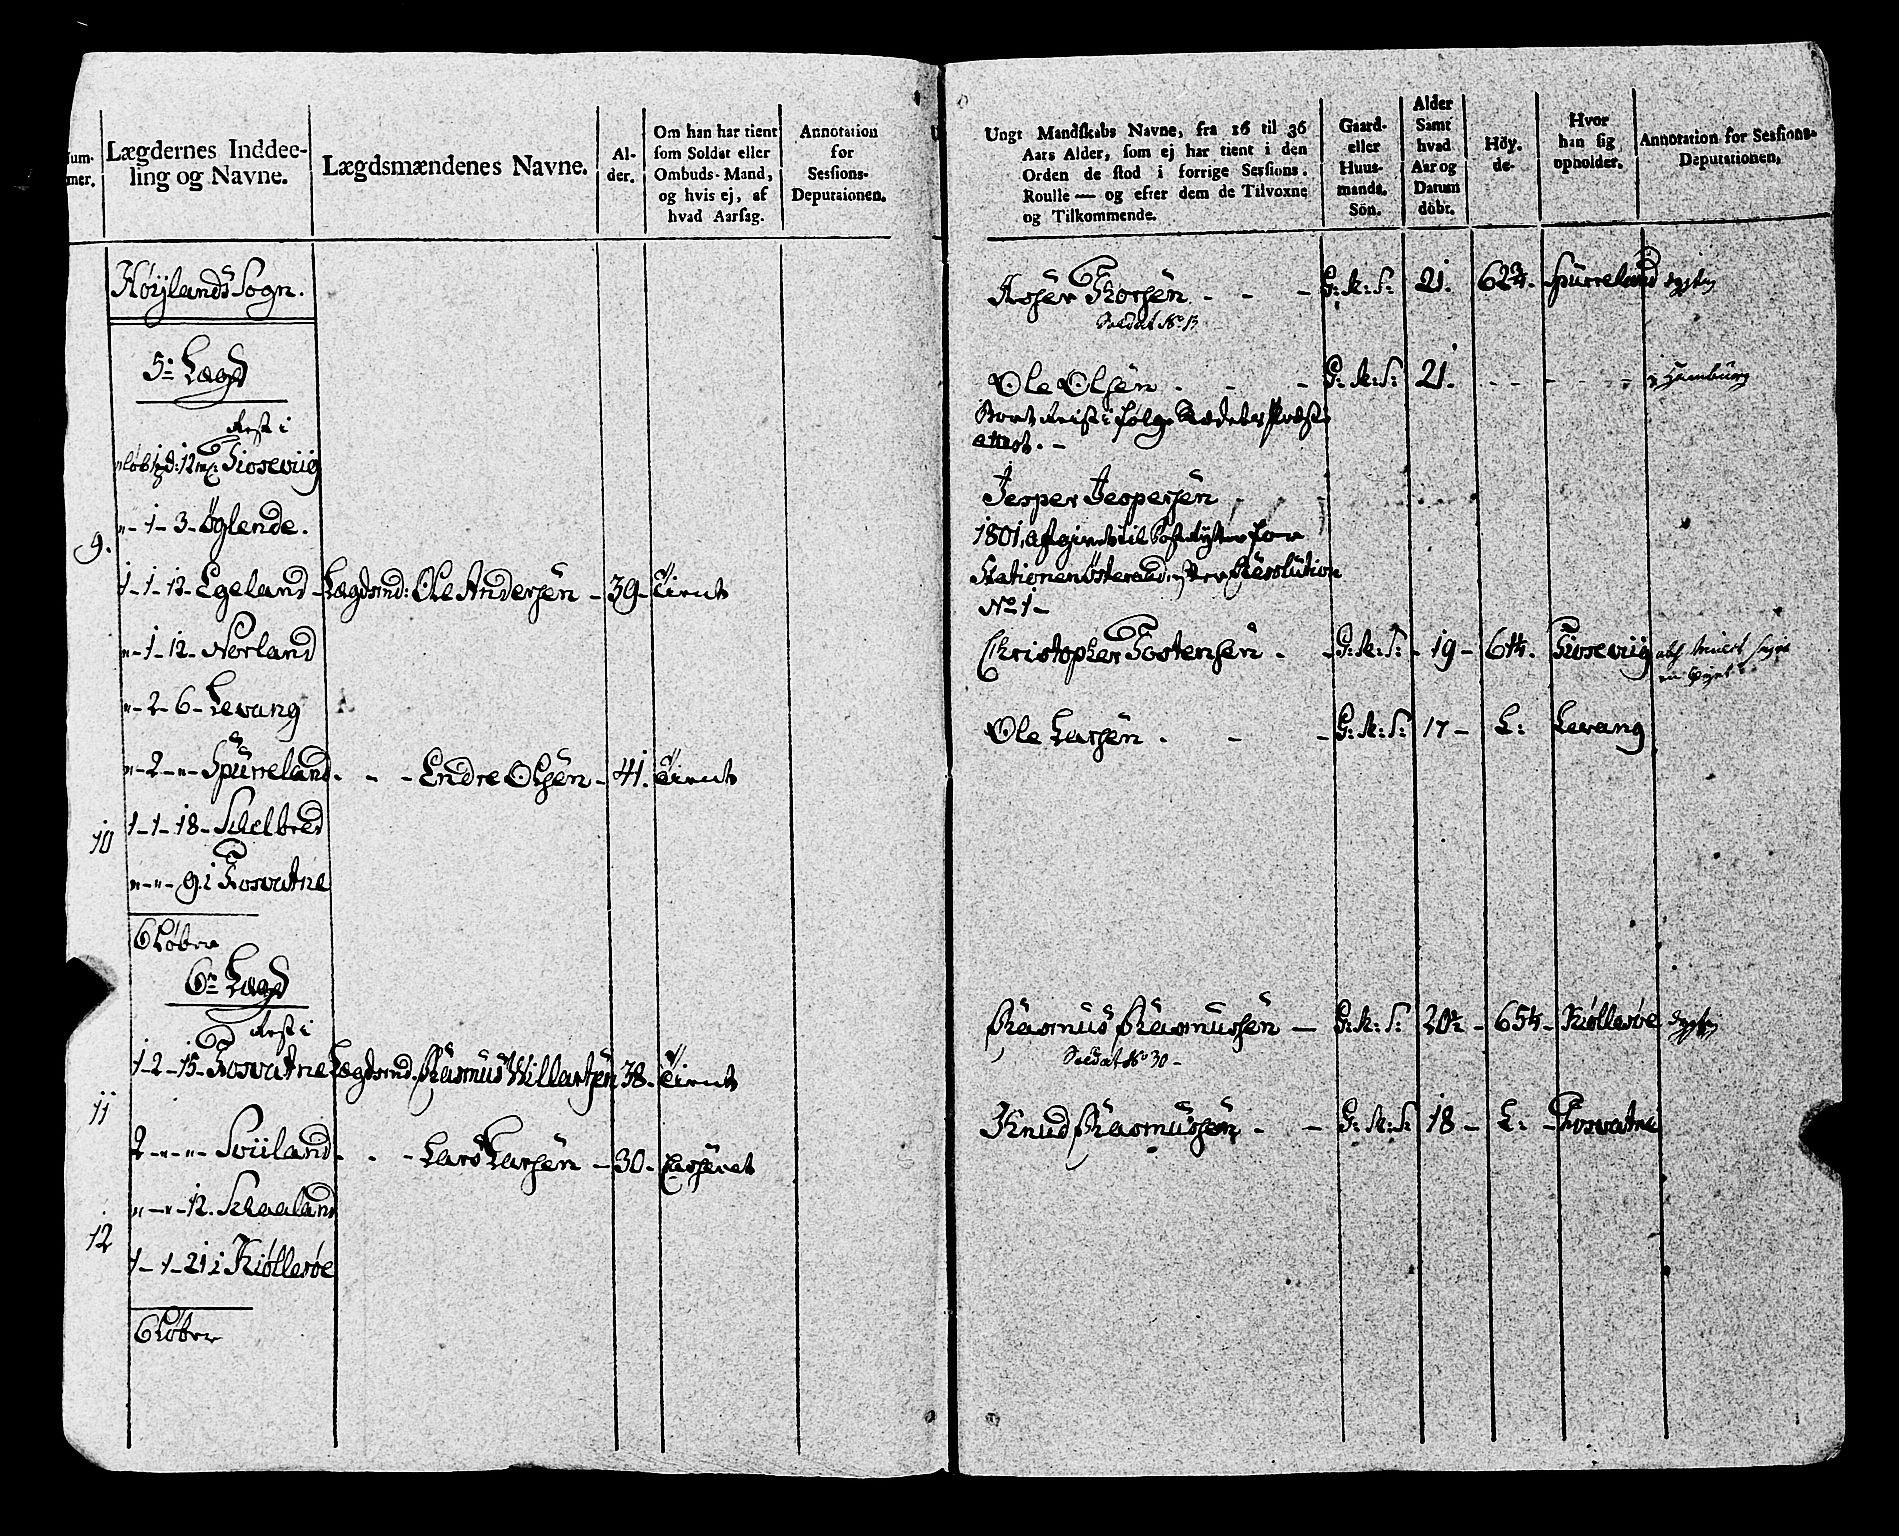 Lægdernes Inddee-
ling og Navne.
Lægdsmændenes Navne.
Al-
der.
Om han har tient
som Soldat eller
Ombuds-Mand,
og hvis ej, af
hvad Aarsag.
Annotation
for
Sessions-
Deputaionen.
Høylands Sogn.
5te Lægd
Rest i
12 Tiosevig
9.
"- 1- 3- Øglende.
1- 1- 12- Egeland - Lægdsmd: Ole Andersen - 39- Tient
"- 1- 12- Norland
"- 2- 6- Levang
"- 2- "- Spurreland. - - Endre Olsen - 41. Tient
10
1- 1- 18- Schelbred
"- "- 9. i Fosvatne
6 Løber
6te Lægd
Rest i
1- 2- 15- Fosvatne Lægdsmd. Rasmus Willartsen 38- Tient
11
2- "- "- Sviland. - - Lars Larsen - 30- Casseret
"- "- 12. Schaaland
12
1- 1- 21 i Kiøllesøe
6 Løber
Ungt Mandskabs Navne, fra 16 til 36
Aars Alder, som ej har tient i den
Orden de stod i forrige Sessions-
Roulle — og efter dem de Tilvoxne
og Tilkommende.
Gaard-
eller
Huus-
mands.
Sön.
Alder
Samt
hvad
Aar og
Datum
döbt.
Höy-
de-
Hvor
han sig
opholder.
Annotation for Sessions-
Deputationen.
Asser Thorsen - - - G: M: S: 21. 62¾. Spurreland dygtig
Soldat No 13
Ole Olsen . - - G: M: S: 21. - - - - - i Hamburg
Bort Reist i følge Stædets Præste
attest. -
Jesper Jespersen
1801, afgivet til Post Rytter for
Stationen Østeraad, Resolution
No 1 -
Christopher Tostensen . - G: M: S: - 19 - 64¼. Tiosevig
Ole Larsen . - - G: M: S: 17 - L: Levang
Rasmus Rasmussen - G: M: S: 20½ - 65¼- Kiøllesøe dygtig
Soldat No 30 -
Knud Rasmussen - - G: M: S: 18 - L: - Fosvatne